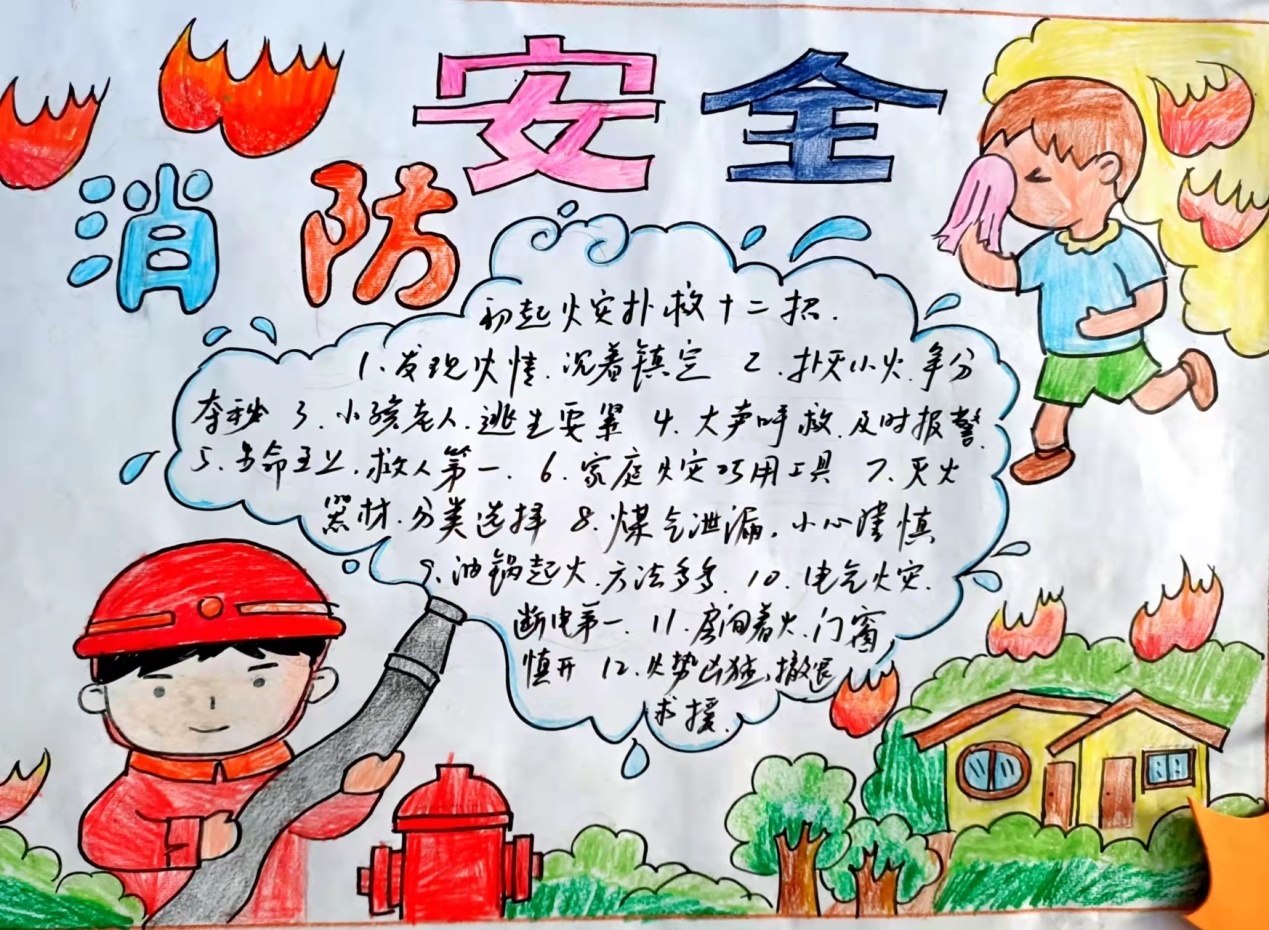 消防安全
初起火灾扑救十二招.
1.发现火情.沉着镇定 2.扑灭小火.争分
夺秒 3.小孩老人.逃生要紧 4.大声呼救.及时报警.
5.生命至上.救人第一. 6.家庭火灾巧用工具 7.灭火
器材.分类选择 8.煤气泄漏.小心谨慎
9.油锅起火.方法多多. 10.电气火灾.
断电第一. 11.房间着火.门窗
慎开 12.火势凶猛.撤退
求援.